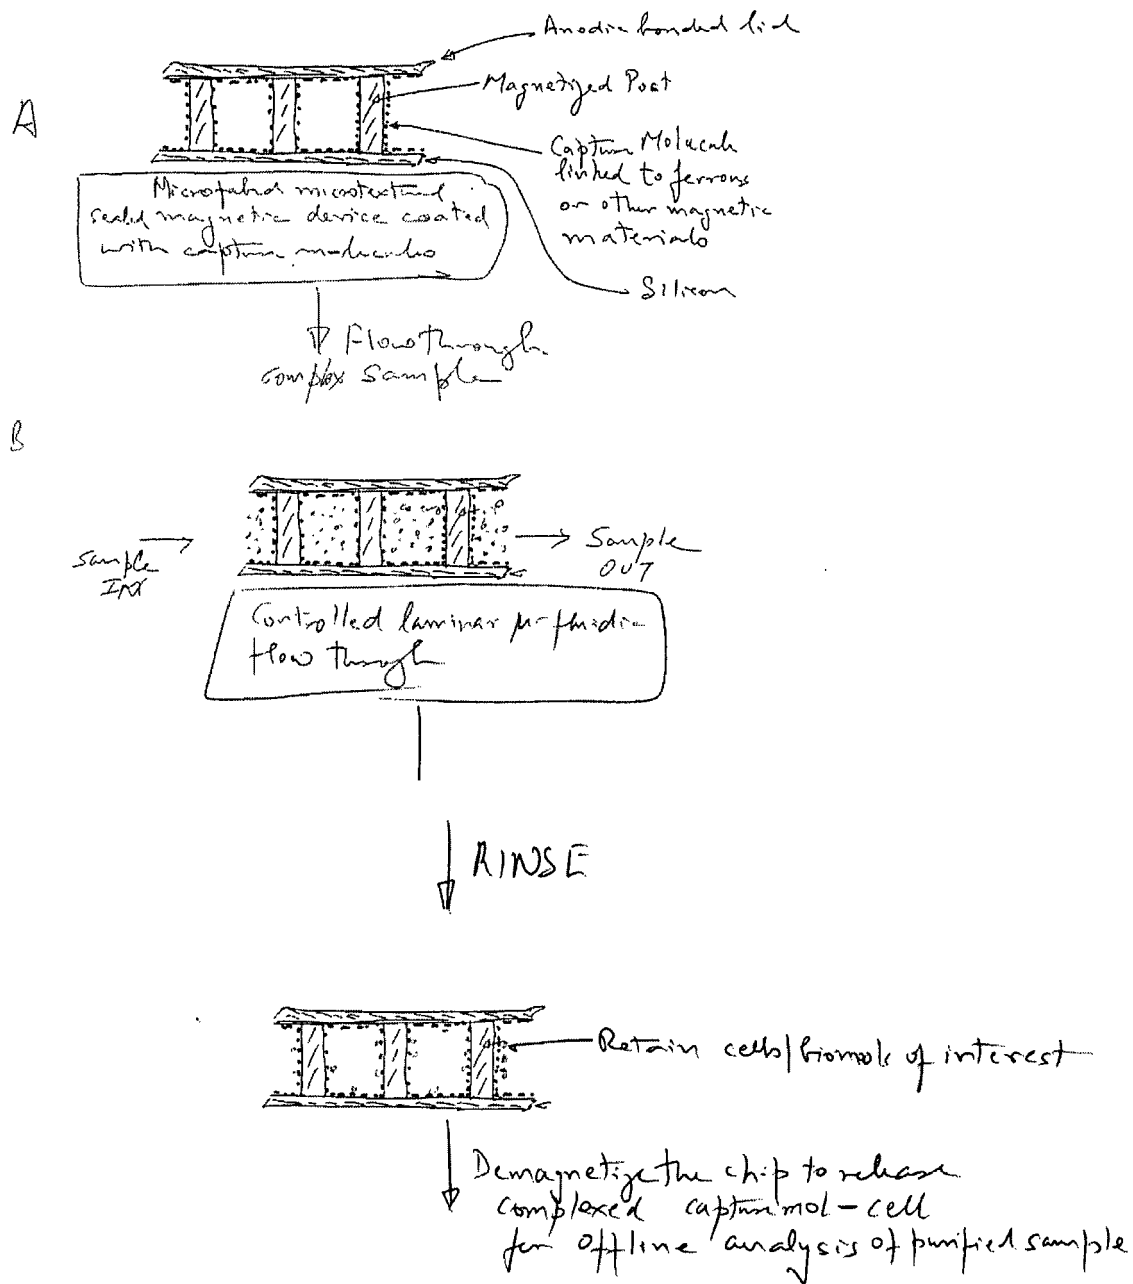 Anodic bonded lid
A
Magnetized Post
Capture Molecule
linked to ferrous
or other magnetic
materials
Microfabed microtextured
sealed magnetic device coated
with capture molecules
Silicon
Flow through
complex sample
B
Sample
IN
Sample
OUT
Controlled laminar μ-fluidic
flow through
RINSE
Retain cells/biomols of interest
Demagnetize the chip to release
complexed capture mol-cell
for offline analysis of purified sample